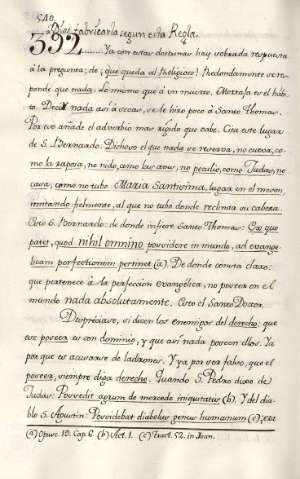 510
á Dios, fabricarla segun esta Regla.
392 Ya con estas doctrinas hay sobrada respuesta
à la pregunta; de ¿que queda al Religioso? Redondamente se res-
ponde que nada. Lo mismo que à un muerto. Mortaja es el habi-
to. Decir nada así à secas, se le hizo poco à Santo Thomas.
Por eso añade el adverbio mas rigido que cabe. Cita este lugar
de S. Bernardo. Dichoso el que nada se reserva, no cueva, co-
mo la raposa, no nido, como las aves, no peculio, como Judas, no
casa, como no tubo Maria Santisima, lugar en el meson,
imitando fielmente, al que no tubo donde reclinar su cabeza.
Esto S. Bernardo: de donde infiere Santo Thomas: Ex quo
patet, quod nihil omnino possidere in mundo, ad evange-
licam perfectionem pertinet (a). De donde consta claro:
que pertenece à la perfeccion evangélica, no poseer en el
mundo nada absolutamente. Esto el Santo Doctor.
que
ese poseer es con dominio, y que así nada poseen ellos. Ya
por que es acusarse de ladrones. Y ya por ser falso, que el
poseer, siempre diga derecho. Quando S. Pedro dice de
Judas: Possedit agrum de mercede iniquitatis (b). Y del dia-
blo S. Agustin: Possidebat diabolus genus humanum (c);
(a) Opusc. 10. Cap. 6. (b) Act. 1. (c) Tract. 52. in Joan.